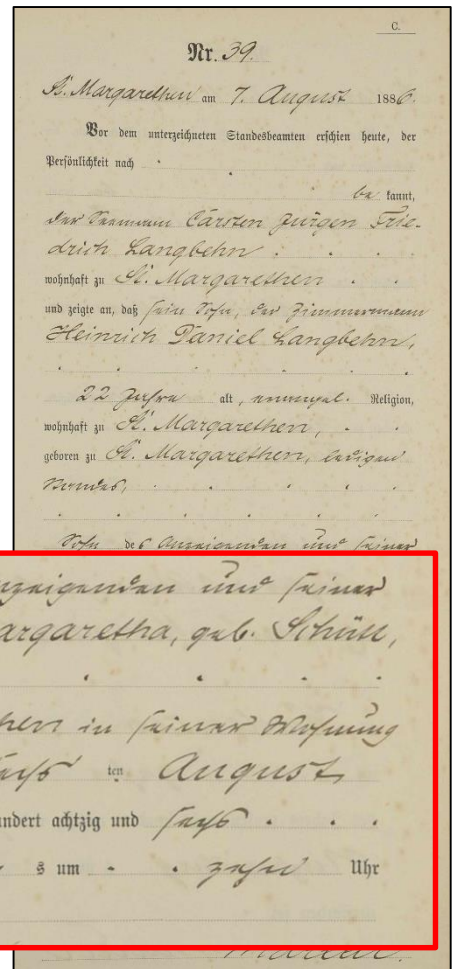 C.
Nr. 39.
St. Margarethen am 7. August 1886.
Vor dem unterzeichneten Standesbeamten erschien heute, der
Persönlichkeit nach
be kannt,
der Seemann Carsten Jürgen Frie-
drich Langbehn
wohnhaft zu St. Margarethen
und zeigte an, daß sein Sohn, der Zimmermann
Heinrich Daniel Langbehn,
22 Jahre alt, evangel. Religion,
wohnhaft zu St. Margarethen,
geboren zu St. Margarethen, ledigen
Standes,
Sohn des Anzeigenden und seiner
nzeigenden und seiner
argaretha, geb. Schütt,
hen in seiner Wohnung
sechs ten August
undert achtzig und sechs
s um zehn Uhr